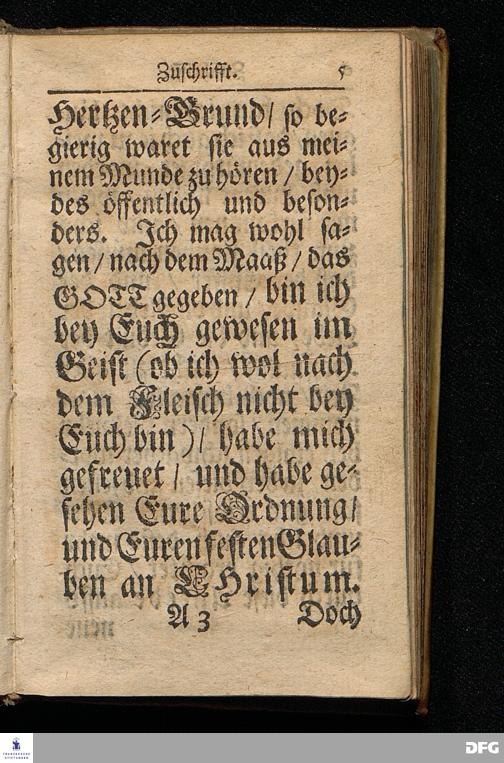 Zuschrifft. 5
Hertzen-Grund/ so be-
gierig waret sie aus mei-
nem Munde zu hören / bey-
des öffentlich und beson-
ders. Ich mag wohl sa-
gen / nach dem Maaß / das
GOTT gegeben / bin ich
bey Euch gewesen im
Geist (ob ich wol nach
dem Fleisch nicht bey
Euch bin )/ habe mich
gefreuet / und habe ge-
sehen Eure Ordnung/
und Euren festen Glau-
ben an CHristum.
A 3 Doch
FRANCKESCHE
STIFTUNGEN
DFG